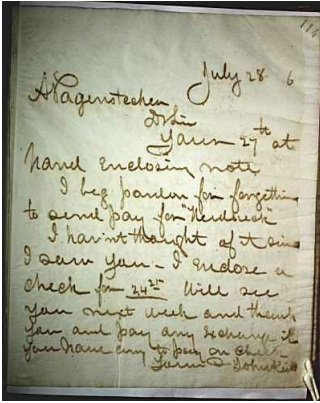 July 28 6
A Pagenstecher
D Sir
Yours 27th at
hand enclosing note
I beg pardon for forgetting
to send pay for
I hav'nt thought of it since
I saw you - I enclose a
check for 24 25 Will see
you next week and thank
you and pay any exchange if
you have any to pay on check
Yours